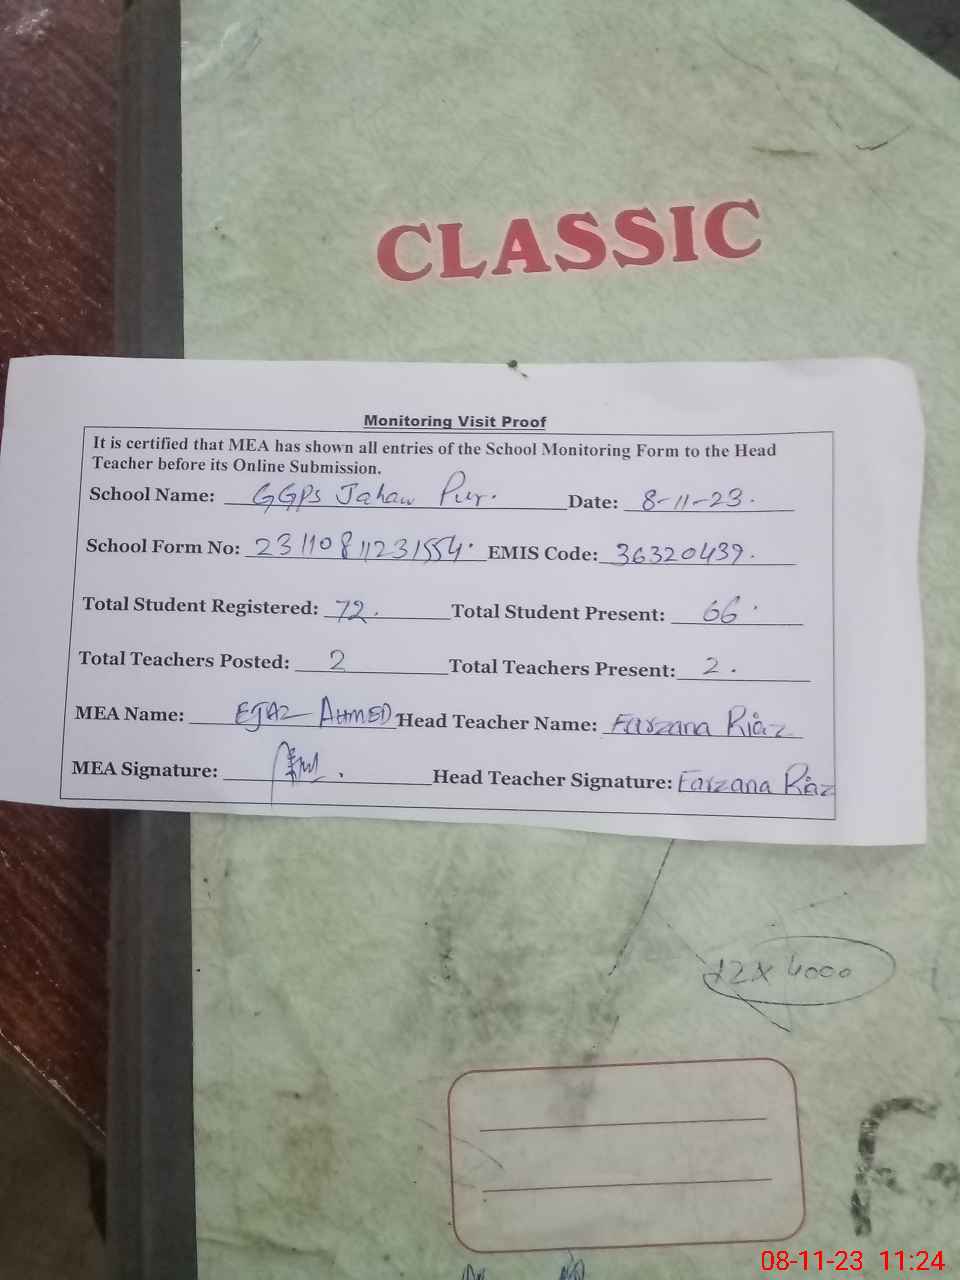 CLASSIC
Monitoring Visit Proof
It is certified that MEA has shown all entries of the School Monitoring Form to the Head
Teacher before its Online Submission.
School Name: GGPS Jahan Pur. Date: 8-11-23.
School Form No: 23110811231554. EMIS Code: 36320439.
Total Student Registered: 72. Total Student Present: 66.
Total Teachers Posted: 2 Total Teachers Present: 2.
MEA Name: EJAZ AHMED Head Teacher Name: Farzana Riaz
MEA Signature: Head Teacher Signature: Farzana Riaz
12x4000
08-11-23 11:24